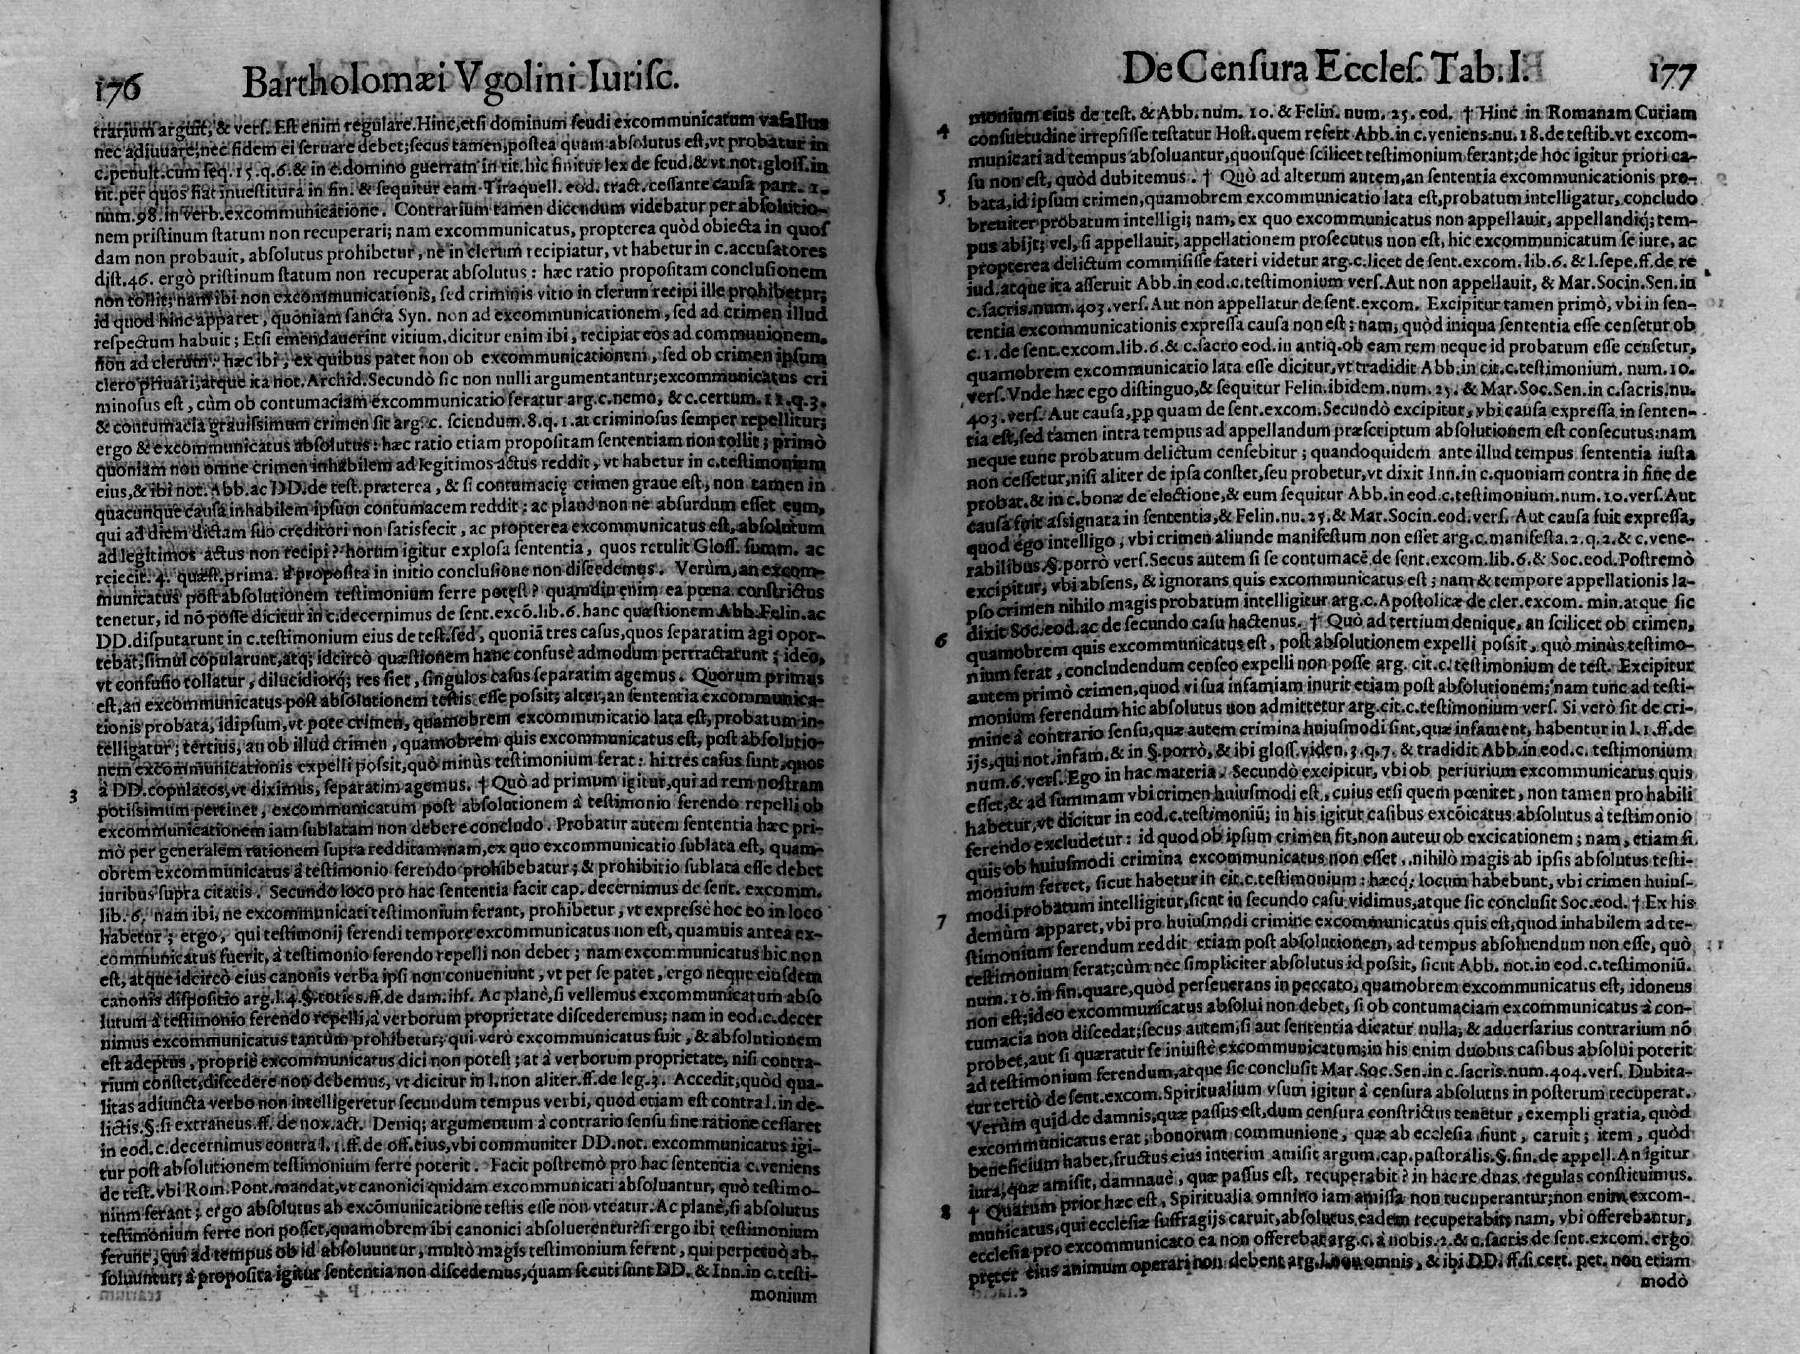 176 Bartholomæi Vgolini Iurisc.
trarium arguit, & vers. Est enim regulare. Hinc, etsi dominum feudi excommunicatum vasallus
nec adjuuare, nec fidem ei seruare debet; secus tamen, postea quam absolutus est, vt probatur in
c. penult. cum seq. 15. q. 6. & in c. domino guerram in tit. hic finitur lex de feud. & vt not. gloss. in
tit. per quos fiat inuestitura in fin. & sequitur eam Tiraquell. eod. tract. cessante causa part. 1.
num. 98. in verb. excommunicatione. Contrarium tamen dicendum videbatur per absolutio-
nem pristinum statum non recuperari; nam excommunicatus, propterea quòd obiecta in quos
dam non probauit, absolutus prohibetur, ne in clerum recipiatur, vt habetur in c. accusatores
dist. 46. ergò pristinum statum non recuperat absolutus: hæc ratio propositam conclusionem
non tollit; nam ibi non excommunicationis, sed criminis vitio in clerum recipi ille prohibetur;
id quod hinc apparet, quoniam sancta Syn. non ad excommunicationem, sed ad crimen illud
respectum habuit; Etsi emendauerint vitium, dicitur enim ibi, recipiat eos ad communionem,
non ad clerum: hæc ibi; ex quibus patet non ob excommunicationem, sed ob crimen ipsum
clero priuari; atque ita not. Archid. Secundò sic non nulli argumentantur; excommunicatus cri
minosus est, cùm ob contumaciam excommunicatio feratur arg. c. nemo, & c. certum. 11. q. 3.
& contumacia grauissimum crimen sit arg. c. sciendum. 8. q. 1. at criminosus semper repellitur;
ergo & excommunicatus absolutus: hæc ratio etiam propositam sententiam non tollit; primò
quoniam non omne crimen inhabilem ad legitimos actus reddit, vt habetur in c. testimonium
eius, & ibi not. Abb. ac DD. de test. præterea, & si contumacię crimen graue est, non tamen in
quacunque causa inhabilem ipsum contumacem reddit: ac planè non ne absurdum esset eum,
qui ad diem dictam suo creditori non satisfecit, ac propterea excommunicatus est, absolutum
ad legitimos actus non recipi? horum igitur explosa sententia, quos retulit Gloss. summ. ac
reiecit. 4. quæst. prima. à proposita in initio conclusione non discedemus. Verùm, an excom-
municatus post absolutionem testimonium ferre potest? quamdiu enim ea pœna constrictus
tenetur, id nō posse dicitur in c. decernimus de sent. excō. lib. 6. hanc quæstionem Abb. Felin. ac
DD. disputarunt in c. testimonium eius de test. sed, quoniā tres casus, quos separatim agi opor-
tebat, simul copularunt, atq; idcircò quæstionem hanc confusè admodum pertractarunt; ideo,
vt confusio tollatur, dilucidiorq; res fiet, singulos casus separatim agemus. Quorum primus
est, an excommunicatus post absolutionem testis esse possit; alter, an sententia excommunica-
tionis probata, id ipsum, vt pote crimen, quamobrem excommunicatio lata est, probatum in-
telligatur; tertius, an ob illud crimen, quamobrem quis excommunicatus est, post absolutio-
nem excommunicationis expelli possit, quò minùs testimonium ferat: hi tres casus sunt, quos
à DD. copulatos, vt diximus, separatim agemus. † Quò ad primum igitur, qui ad rem nostram
3 potissimum pertinet, excommunicatum post absolutionem à testimonio ferendo repelli ob
excommunicationem iam sublatam non debere concludo. Probatur autem sententia hæc pri-
mò per generalem rationem supra redditam: nam, ex quo excommunicatio sublata est, quam-
obrem excommunicatus à testimonio ferendo prohibebatur; & prohibitio sublata esse debet
iuribus supra citatis. Secundo loco pro hac sententia facit cap. decernimus de sent. excomm.
lib. 6. nam ibi, ne excommunicati testimonium ferant, prohibetur, vt expressè hoc eo in loco
habetur; ergo, qui testimonij ferendi tempore excommunicatus non est, quamuis antea ex-
communicatus fuerit, à testimonio ferendo repelli non debet; nam excommunicatus hic non
est, atque idcircò eius canonis verba ipsi non conueniunt, vt per se patet, ergo neque eiusdem
canonis dispositio arg. l. 4. §. toties. ff. de dam. inf. Ac planè, si vellemus excommunicatum abso
lutum à testimonio ferendo repelli, à verborum proprietate discederemus; nam in eod. c. decer
nimus excommunicatus tantùm prohibetur; qui verò excommunicatus fuit, & absolutionem
est adeptus, propriè excommunicatus dici non potest; at à verborum proprietate, nisi contra-
rium constet, discedere non debemus, vt dicitur in l. non aliter. ff. de leg. 3. Accedit, quòd qua-
litas adiuncta verbo non intelligeretur secundum tempus verbi, quod etiam est contra l. in de-
lictis. §. si extraneus. ff. de nox. act. Deniq; argumentum à contrario sensu sine ratione cessaret
in eod. c. decernimus contra l. 1. ff. de off. eius, vbi communiter DD. not. excommunicatus igi-
tur post absolutionem testimonium ferre poterit. Facit postremò pro hac sententia c. veniens
de test. vbi Rom. Pont. mandat, vt canonici quidam excommunicati absoluantur, quò testimo-
nium ferant; ergo absolutus ab excōmunicatione testis esse non vteatur. Ac planè, si absolutus
testimonium ferre non posset, quamobrem ibi canonici absoluerentur? si ergo ibi testimonium
ferunt, qui ad tempus ob id absoluuntur, multò magis testimonium ferent, qui perpetuò ab-
soluuntur; à proposita igitur sententia non discedemus, quam secuti sunt DD. & Inn. in c. testi-
monium
De Censura Eccles. Tab. I. 177
monium eius de test. & Abb. num. 10. & Felin. num. 25. eod. † Hinc in Romanam Curiam
4 consuetudine irrepsisse testatur Host. quem refert Abb. in c. veniens. nu. 18. de testib. vt excom-
municati ad tempus absoluantur, quousque scilicet testimonium ferant; de hoc igitur priori ca-
su non est, quòd dubitemus. † Quò ad alterum autem, an sententia excommunicationis pro-
5 bata, id ipsum crimen, quamobrem excommunicatio lata est, probatum intelligatur, concludo
breuiter probatum intelligi; nam, ex quo excommunicatus non appellauit, appellandiq; tem-
pus abijt; vel, si appellauit, appellationem prosecutus non est, hic excommunicatum se iure, ac
propterea delictum commisisse fateri videtur arg. c. licet de sent. excom. lib. 6. & l. sepe. ff. de re
iud. atque ita asseruit Abb. in eod. c. testimonium vers. Aut non appellauit, & Mar. Socin. Sen. in
c. sacris. num. 403. vers. Aut non appellatur de sent. excom. Excipitur tamen primò, vbi in sen-
tentia excommunicationis expressa causa non est; nam, quòd iniqua sententia esse censetur ob
c. 1. de sent. excom. lib. 6. & c. sacro eod. in antiq. ob eam rem neque id probatum esse censetur,
quamobrem excommunicatio lata esse dicitur, vt tradidit Abb. in cit. c. testimonium. num. 10.
vers. Vnde hæc ego distinguo, & sequitur Felin. ibidem. num. 25. & Mar. Soc. Sen. in c. sacris. nu.
403. vers. Aut causa, pp quam de sent. excom. Secundò excipitur, vbi causa expressa in senten-
tia est, sed tamen intra tempus ad appellandum præscriptum absolutionem est consecutus: nam
neque tunc probatum delictum censebitur; quandoquidem ante illud tempus sententia iusta
non censetur, nisi aliter de ipsa constet, seu probetur, vt dixit Inn. in c. quoniam contra in fine de
probat. & in c. bonæ de electione, & eum sequitur Abb. in eod. c. testimonium. num. 10. vers. Aut
causa fuit assignata in sententia, & Felin. nu. 25. & Mar. Socin. eod. vers. Aut causa fuit expressa,
quod ego intelligo, vbi crimen aliunde manifestum non esset arg. c. manifesta. 2. q. 2. & c. vene-
rabilibus. §. porrò vers. Secus autem si se contumacē de sent. excom. lib. 6. & Soc. eod. Postremò
excipitur, vbi absens, & ignorans quis excommunicatus est; nam & tempore appellationis la-
pso crimen nihilo magis probatum intelligitur arg. c. Apostolicæ de cler. excom. min. atque sic
dixit Soc. eod. ac de secundo casu hactenus. † Quò ad tertium denique, an scilicet ob crimen,
6 quamobrem quis excommunicatus est, post absolutionem expelli possit, quò minùs testimo-
nium ferat, concludendum censeo expelli non posse arg. cit. c. testimonium de test. Excipitur
autem primò crimen, quod vi sua infamiam inurit etiam post absolutionem; nam tunc ad testi-
monium ferendum hic absolutus non admittetur arg. cit. c. testimonium vers. Si verò sit de cri-
mine à contrario sensu, quæ autem crimina huiusmodi sint, quæ infament, habentur in l. 1. ff. de
ijs, qui not. infam. & in §. porrò, & ibi gloss. viden. 3. q. 7. & tradidit Abb. in eod. c. testimonium
num. 6. vers. Ego in hac materia. Secundò excipitur, vbi ob periurium excommunicatus quis
esset, & ad summam vbi crimen huiusmodi est, cuius etsi quem pœnitet, non tamen pro habili
habetur, vt dicitur in eod. c. testimoniū; in his igitur casibus excōicatus absolutus à testimonio
ferendo excludetur: id quod ob ipsum crimen fit, non autem ob excicationem; nam, etiam si
quis ob huiusmodi crimina excommunicatus non esset, nihilò magis ab ipsis absolutus testi-
monium ferret, sicut habetur in cit. c. testimonium: hæcq; locum habebunt, vbi crimen huius-
modi probatum intelligitur, sicut in secundo casu vidimus, atque sic conclusit Soc. eod. † Ex his
7 demùm apparet, vbi pro huiusmodi crimine excommunicatus quis est, quod inhabilem ad te-
stimonium ferendum reddit etiam post absolutionem, ad tempus absoluendum non esse, quò
testimonium ferat; cùm nec simpliciter absolutus id possit, sicut Abb. not. in eod. c. testimoniū.
num. 10. in fin. quare, quòd perseuerans in peccato, quamobrem excommunicatus est, idoneus
non est; ideo excommunicatus absolui non debet, si ob contumaciam excommunicatus à con-
tumacia non discedat; secus autem; si aut sententia dicatur nulla, & aduersarius contrarium nō
probet, aut si quæratur se iniustè excommunicatum; in his enim duobus casibus absolui poterit
ad testimonium ferendum, atque sic conclusit Mar. Soc. Sen. in c. sacris. num. 404. vers. Dubita-
tur tertiò de sent. excom. Spiritualium vsum igitur à censura absolutus in posterum recuperat.
Verùm quid de damnis, quæ passus est, dum censura constrictus tenetur, exempli gratia, quòd
excommunicatus erat, bonorum communione, quæ ab ecclesia fiunt, caruit; item, quòd
beneficium habet, fructus eius interim amisit argum. cap. pastoralis. §. fin. de appell. An igitur
iura, quæ amisit, damnauè, quæ passus est, recuperabit? in hac re dnas regulas constituimus.
8 † Quarum prior hæc est, Spiritualia omnino iam amissa non recuperantur; non enim excom-
municatus, qui ecclesiæ suffragijs caruit, absolutus eadem recuperabit; nam, vbi offerebantur,
ecclesia pro excommunicato ea non offerebat arg. c. à nobis. 2. & c. sacris de sent. excom. ergo
præter eius animum operari non debent arg. l. non omnis, & ibi DD. ff. si cert. pet. non etiam
modò